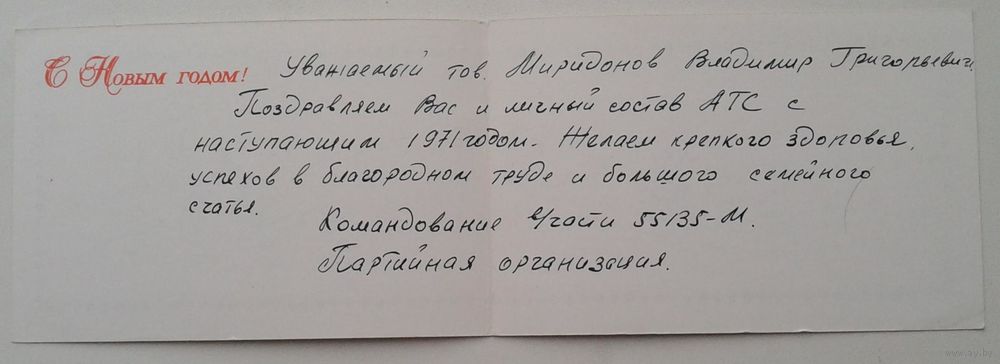 С Новым годом! Уважаемый тов. Миридонов Владимир Григорьевич.
Поздравляем Вас и личный состав АТС с
наступающим 1971 годом. Желаем крепкого здоровья,
успехов в благородном труде и большого семейного
счатья.
Командование в/части 55135-М.
Партийная организация.
www.ay.by